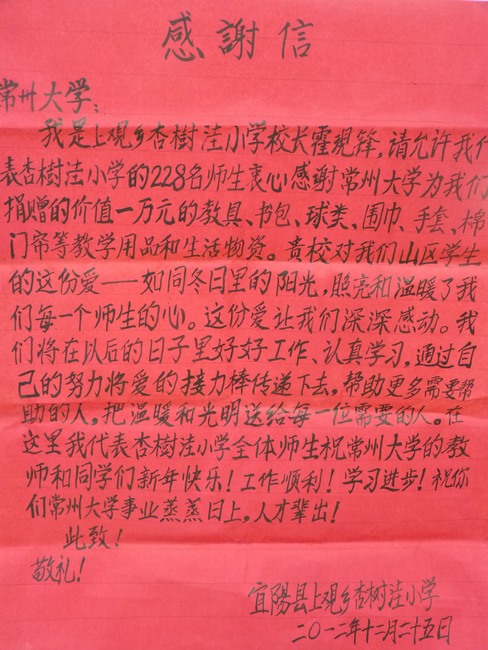 感謝信
常州大学:
我是上观乡杏樹洼小学校长霍观锋,请允许我代
表杏樹洼小学的228名师生衷心感谢常州大学为我们
捐赠的价值一万元的教具、书包、球类、围巾、手套、棉
门帘等教学用品和生活物资。贵校对我们山区学生
的这份爱——如同冬日里的阳光,照亮和温暖了我
们每一个师生的心。这份爱让我们深深感动。我
们将在以后的日子里好好工作、认真学习,通过自
己的努力将爱的接力棒传递下去,帮助更多需要帮
助的人,把温暖和光明送给每一位需要的人。在
这里我代表杏樹洼小学全体师生祝常州大学的教
师和同学们新年快乐!工作顺利!学习进步!祝你
们常州大学事业蒸蒸日上,人才辈出!
此致!
敬礼!
宜陽县上观乡杏树洼小学
二〇一二年十二月二十五日